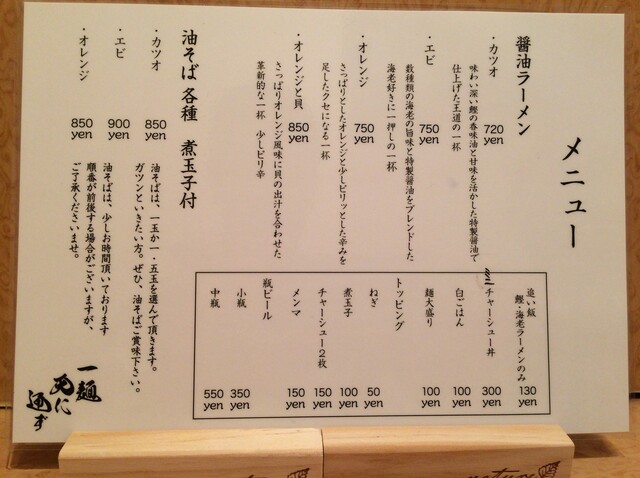 メニュー
醤油ラーメン
・カツオ 720 yen
味わい深い鰹の香味油と甘味を活かした特製醤油で
仕上げた王道の一杯
・エビ 750 yen
数種類の海老の旨味と特製醤油をブレンドした
海老好きに一押しの一杯
・オレンジ 750 yen
さっぱりとしたオレンジと少しピリッとした辛みを
足したクセになる一杯
・オレンジと貝 850 yen
さっぱりオレンジ風味に貝の出汁を合わせた
革新的な一杯 少しピリ辛
油そば 各種 煮玉子付
・カツオ 850 yen
・エビ 900 yen
・オレンジ 850 yen
油そばは、一玉か一・五玉を選んで頂きます。
ガツンといきたい方。ぜひ、油そばご賞味下さい。
油そばは、少しお時間頂いております
順番が前後する場合がございますが、
ご了承くださいませ。
追い飯
鰹・海老ラーメンのみ 130 yen
チャーシュー丼 300 yen
白ごはん 100 yen
麺大盛り 100 yen
トッピング
ねぎ 50 yen
煮玉子 100 yen
チャーシュー2枚 150 yen
メンマ 150 yen
瓶ビール
小瓶 350 yen
中瓶 550 yen
一麺